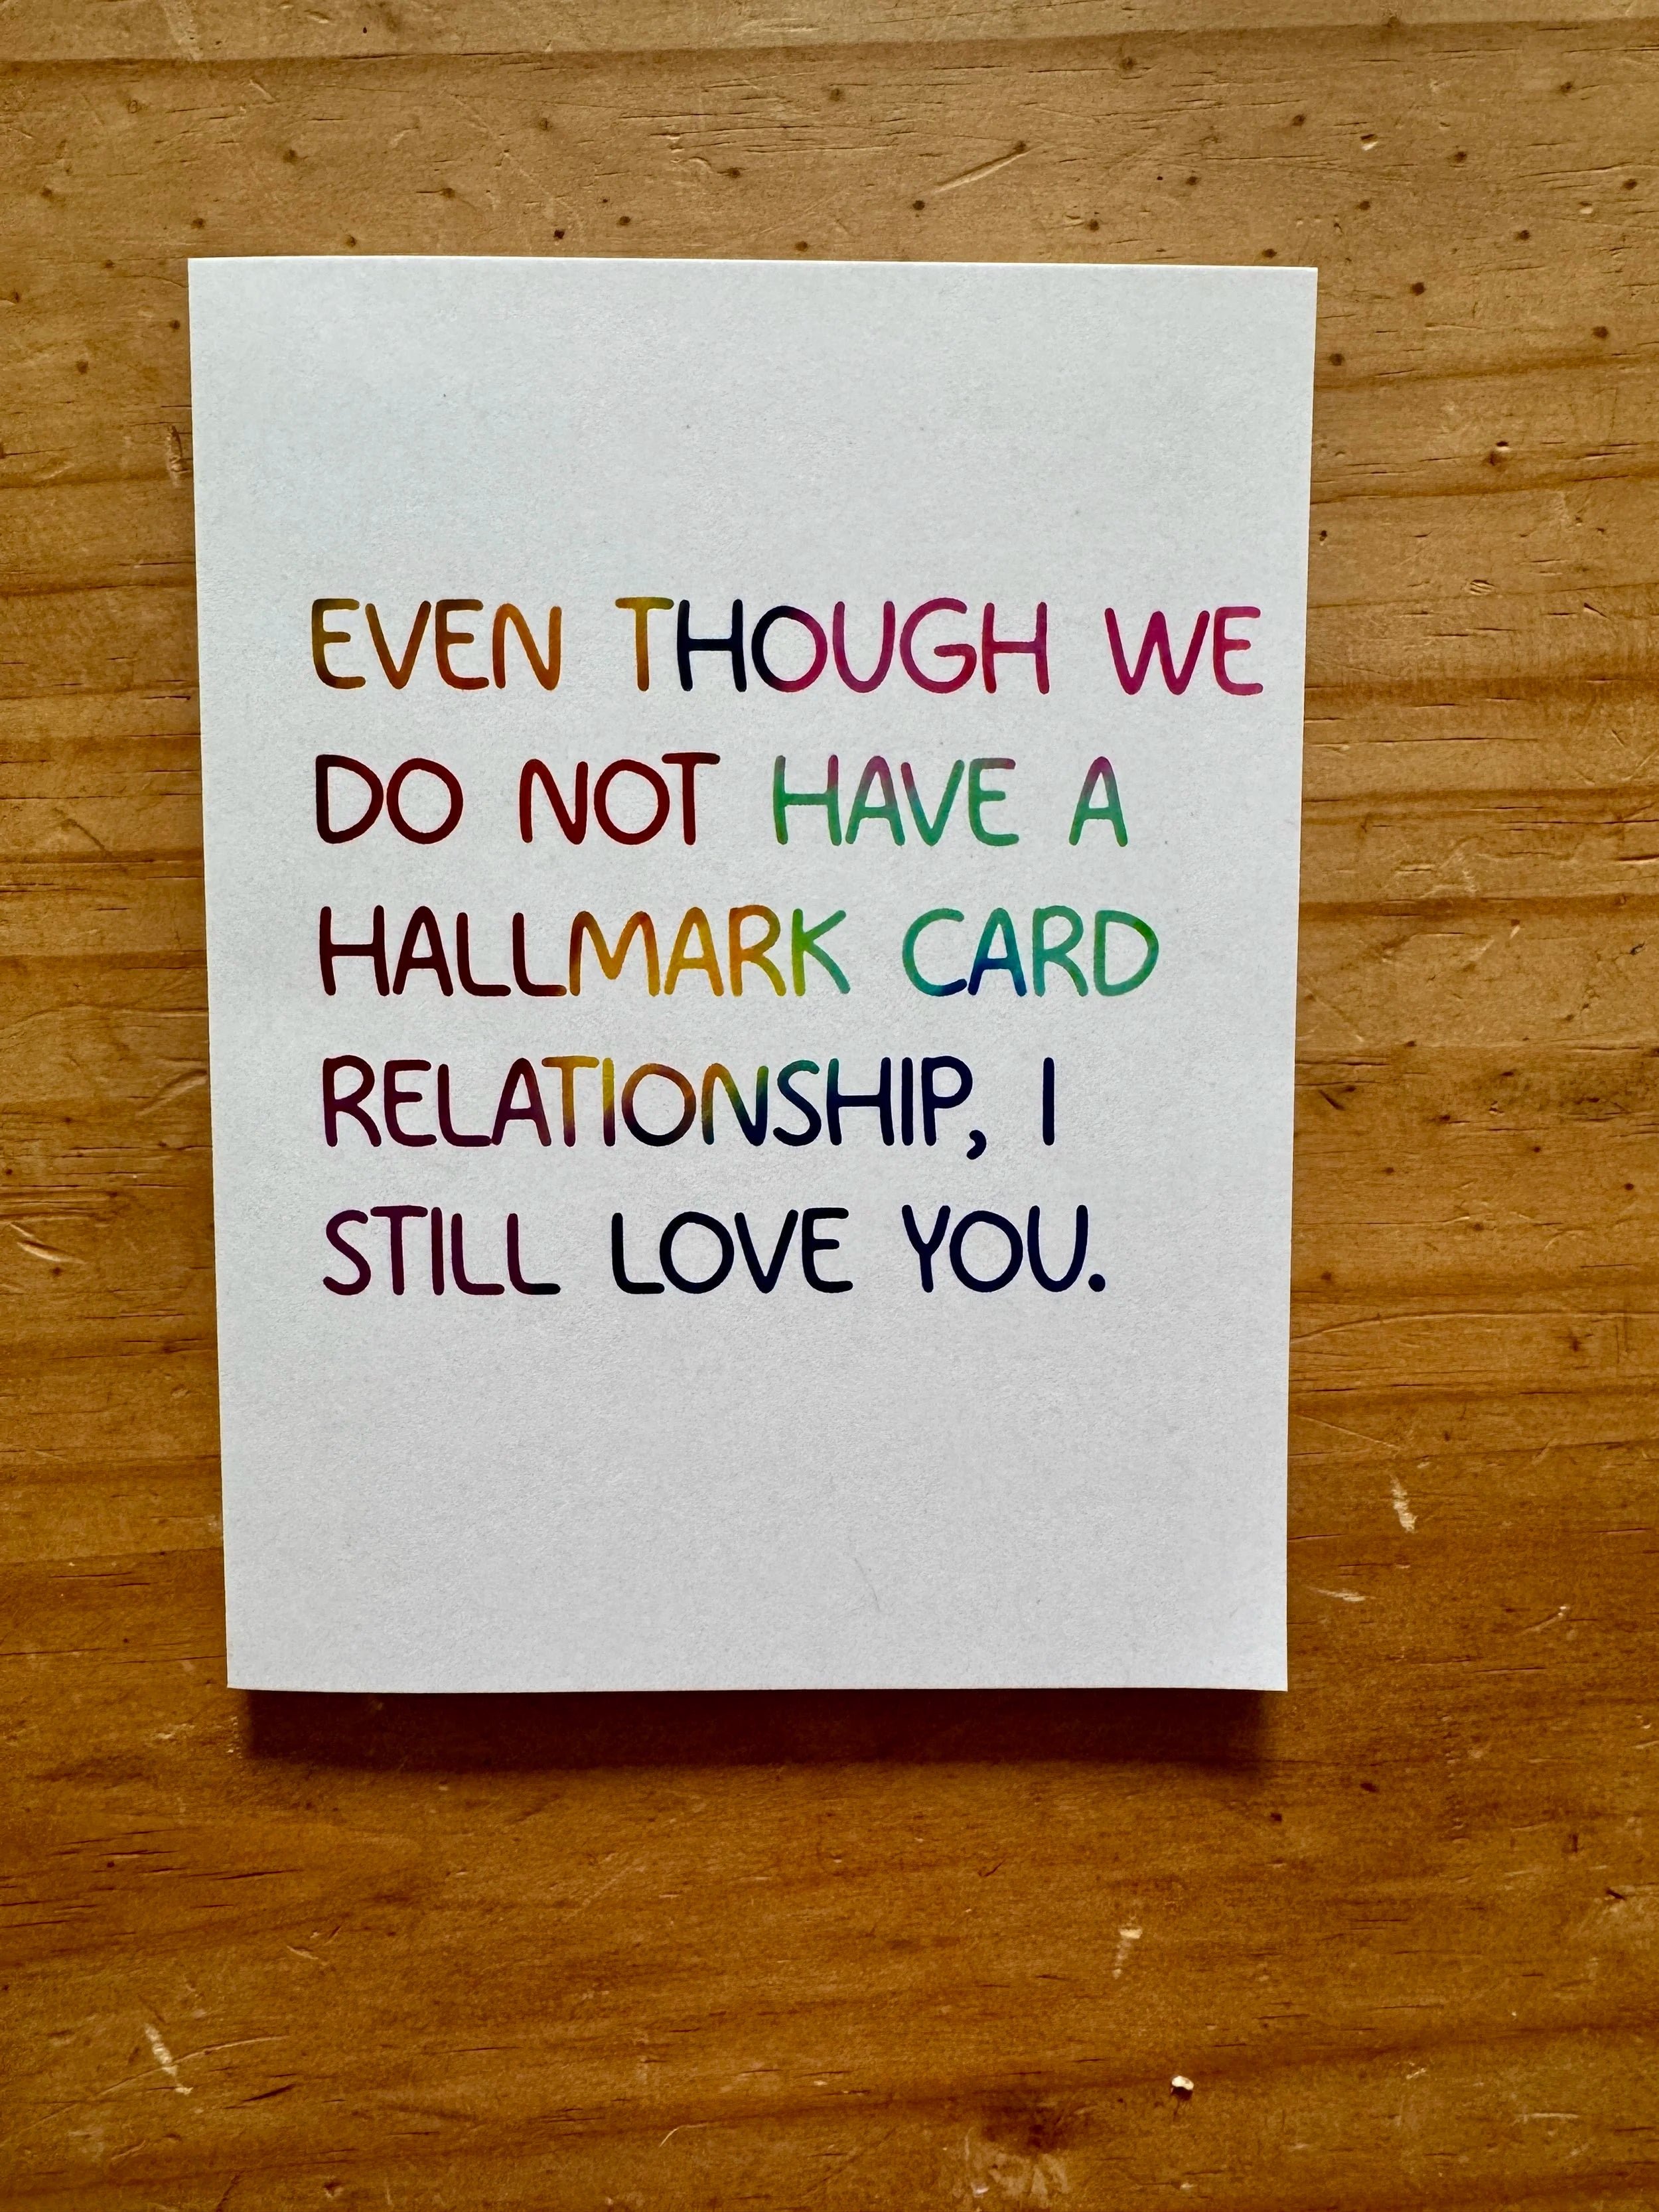 EVEN THOUGH WE
DO NOT HAVE A
HALLMARK CARD
RELATIONSHIP, I
STILL LOVE YOU.